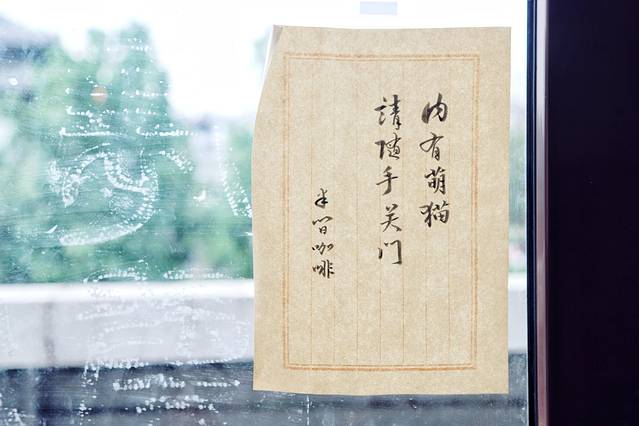 内有萌猫
請随手关门
半間咖啡